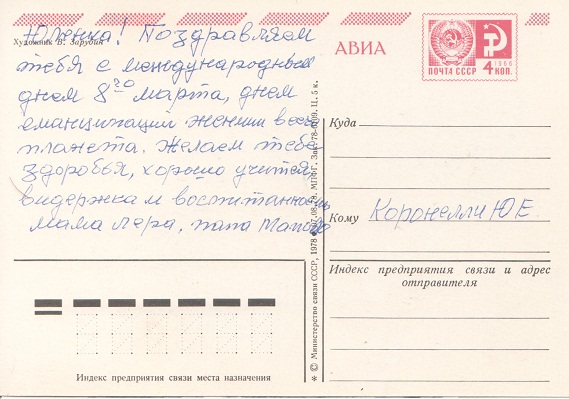 Юленька! Поздравляем
Художник В. Зарубин
тебя с международным
днем 8го марта, днем
еманципации женщин всей
планета. Желаем тебе
здоровья, хорошо учиться,
видержка и воспитанность
мама Лера, папа
АВИА
1966
ПОЧТА СССР 4 КОП.
Куда
Кому Коронелли Ю Е
Индекс предприятия связи и адрес
отправителя
Индекс предприятия связи места назначения
* © Министерство связи СССР, 1978
МПФГ. Зак. Ц. 5 к.